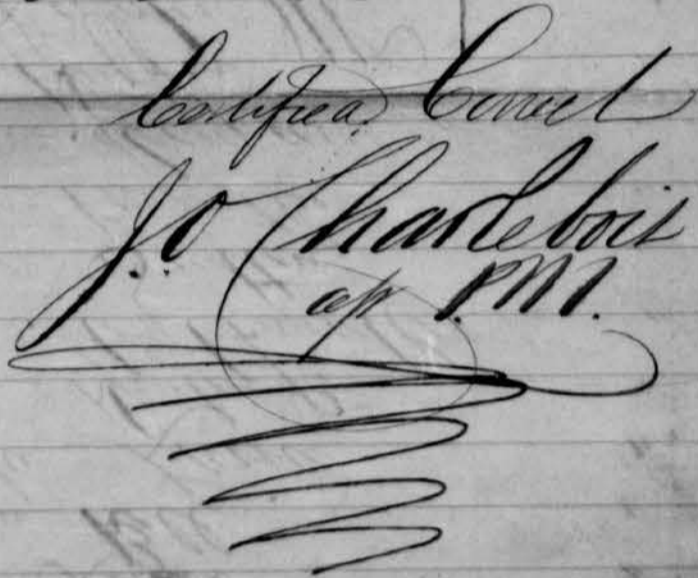 Certified Correct
J.O Charlebois
P.M.